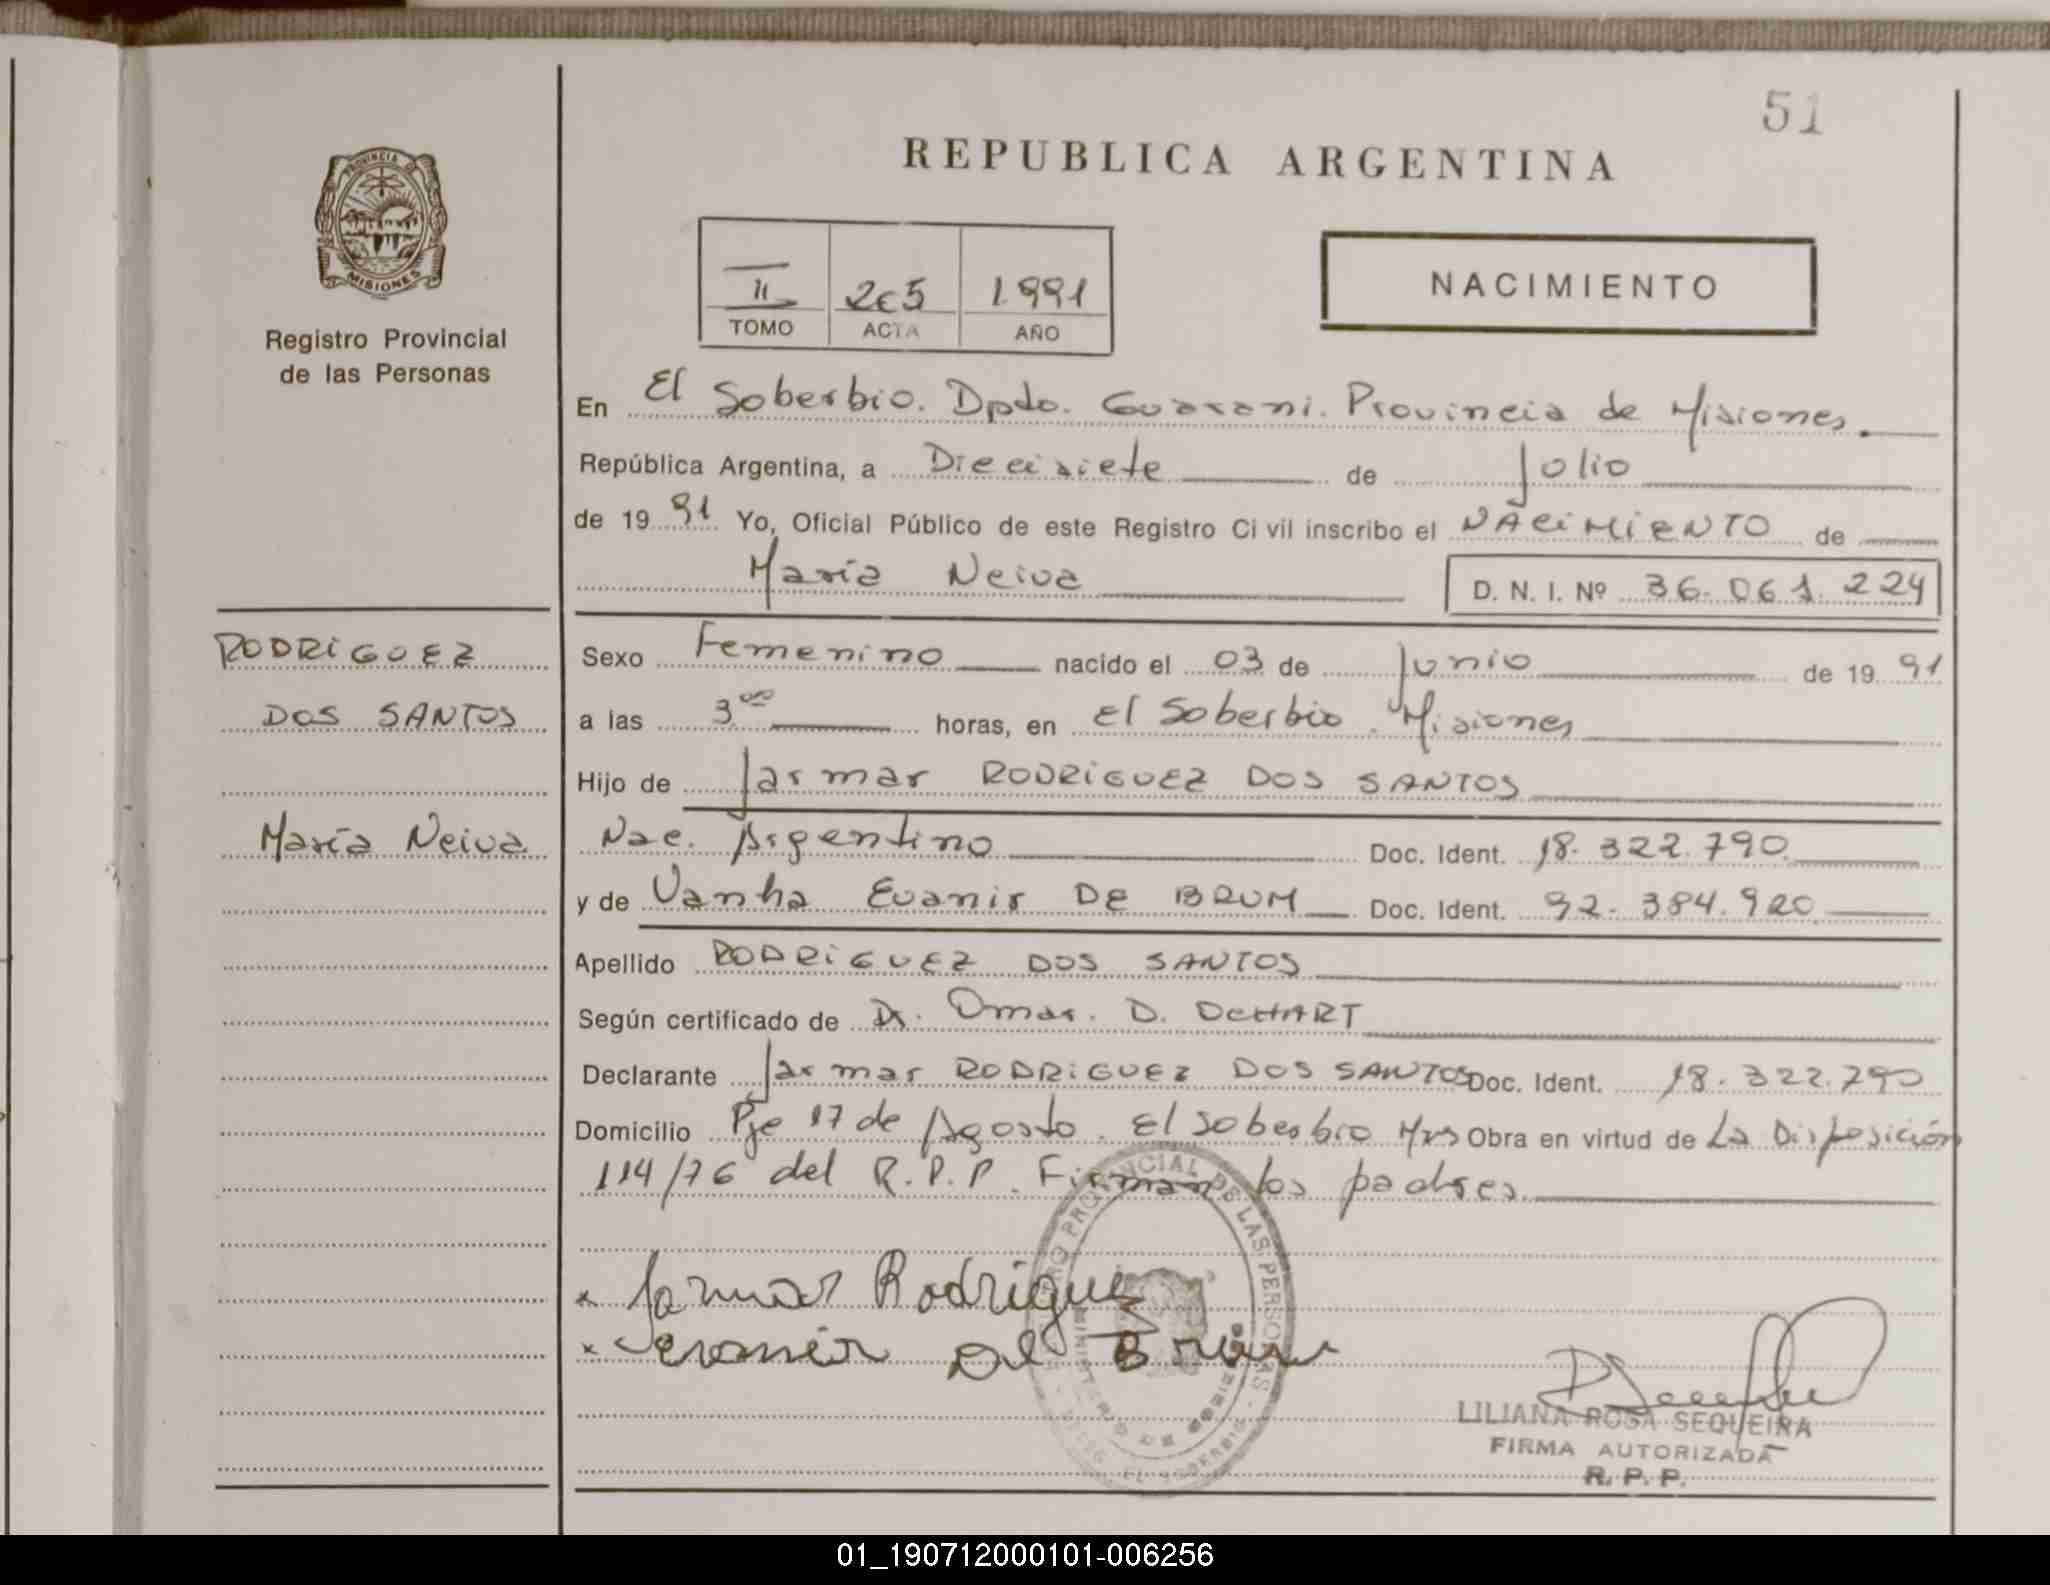 51
REPUBLICA ARGENTINA
PROVINCIA DE
MISIONES
Registro Provincial
de las Personas
II 205 1991
TOMO ACTA AÑO
NACIMIENTO
En El Soberbio. Dpto. Guaraní. Provincia de Misiones
República Argentina, a Diecisiete de Julio
de 1991 Yo, Oficial Público de este Registro Civil inscribo el NACIMIENTO de
María Neiva D. N. I. Nº 36.061.224
RODRIGUEZ
DOS SANTOS
María Neiva
Sexo Femenino nacido el 03 de Junio de 1991
a las 3 00 horas, en El Soberbio. Misiones
Hijo de Jarmar RODRIGUEZ DOS SANTOS
Nac. Argentino Doc. Ident. 18.322.790
y de Vanha Evanir DE BRUM Doc. Ident. 92.384.920
Apellido RODRIGUEZ DOS SANTOS
Según certificado de Dr. Omar. D. DCHART
Declarante Jarmar RODRIGUEZ DOS SANTOS Doc. Ident. 18.322.790
Domicilio Pje 17 de Agosto. El Soberbio Mns Obra en virtud de La Disposición
114/76 del R.P.P. Firman los padres
x Jarmar Rodriguez
x Evanir De Brum
REGISTRO PROVINCIAL DE LAS PERSONAS
MINISTERIO DE GOBIERNO
DELEG. EL SOBERBIO
LILIANA ROSA SEQUEIRA
FIRMA AUTORIZADA
R. P. P.
01_190712000101-006256